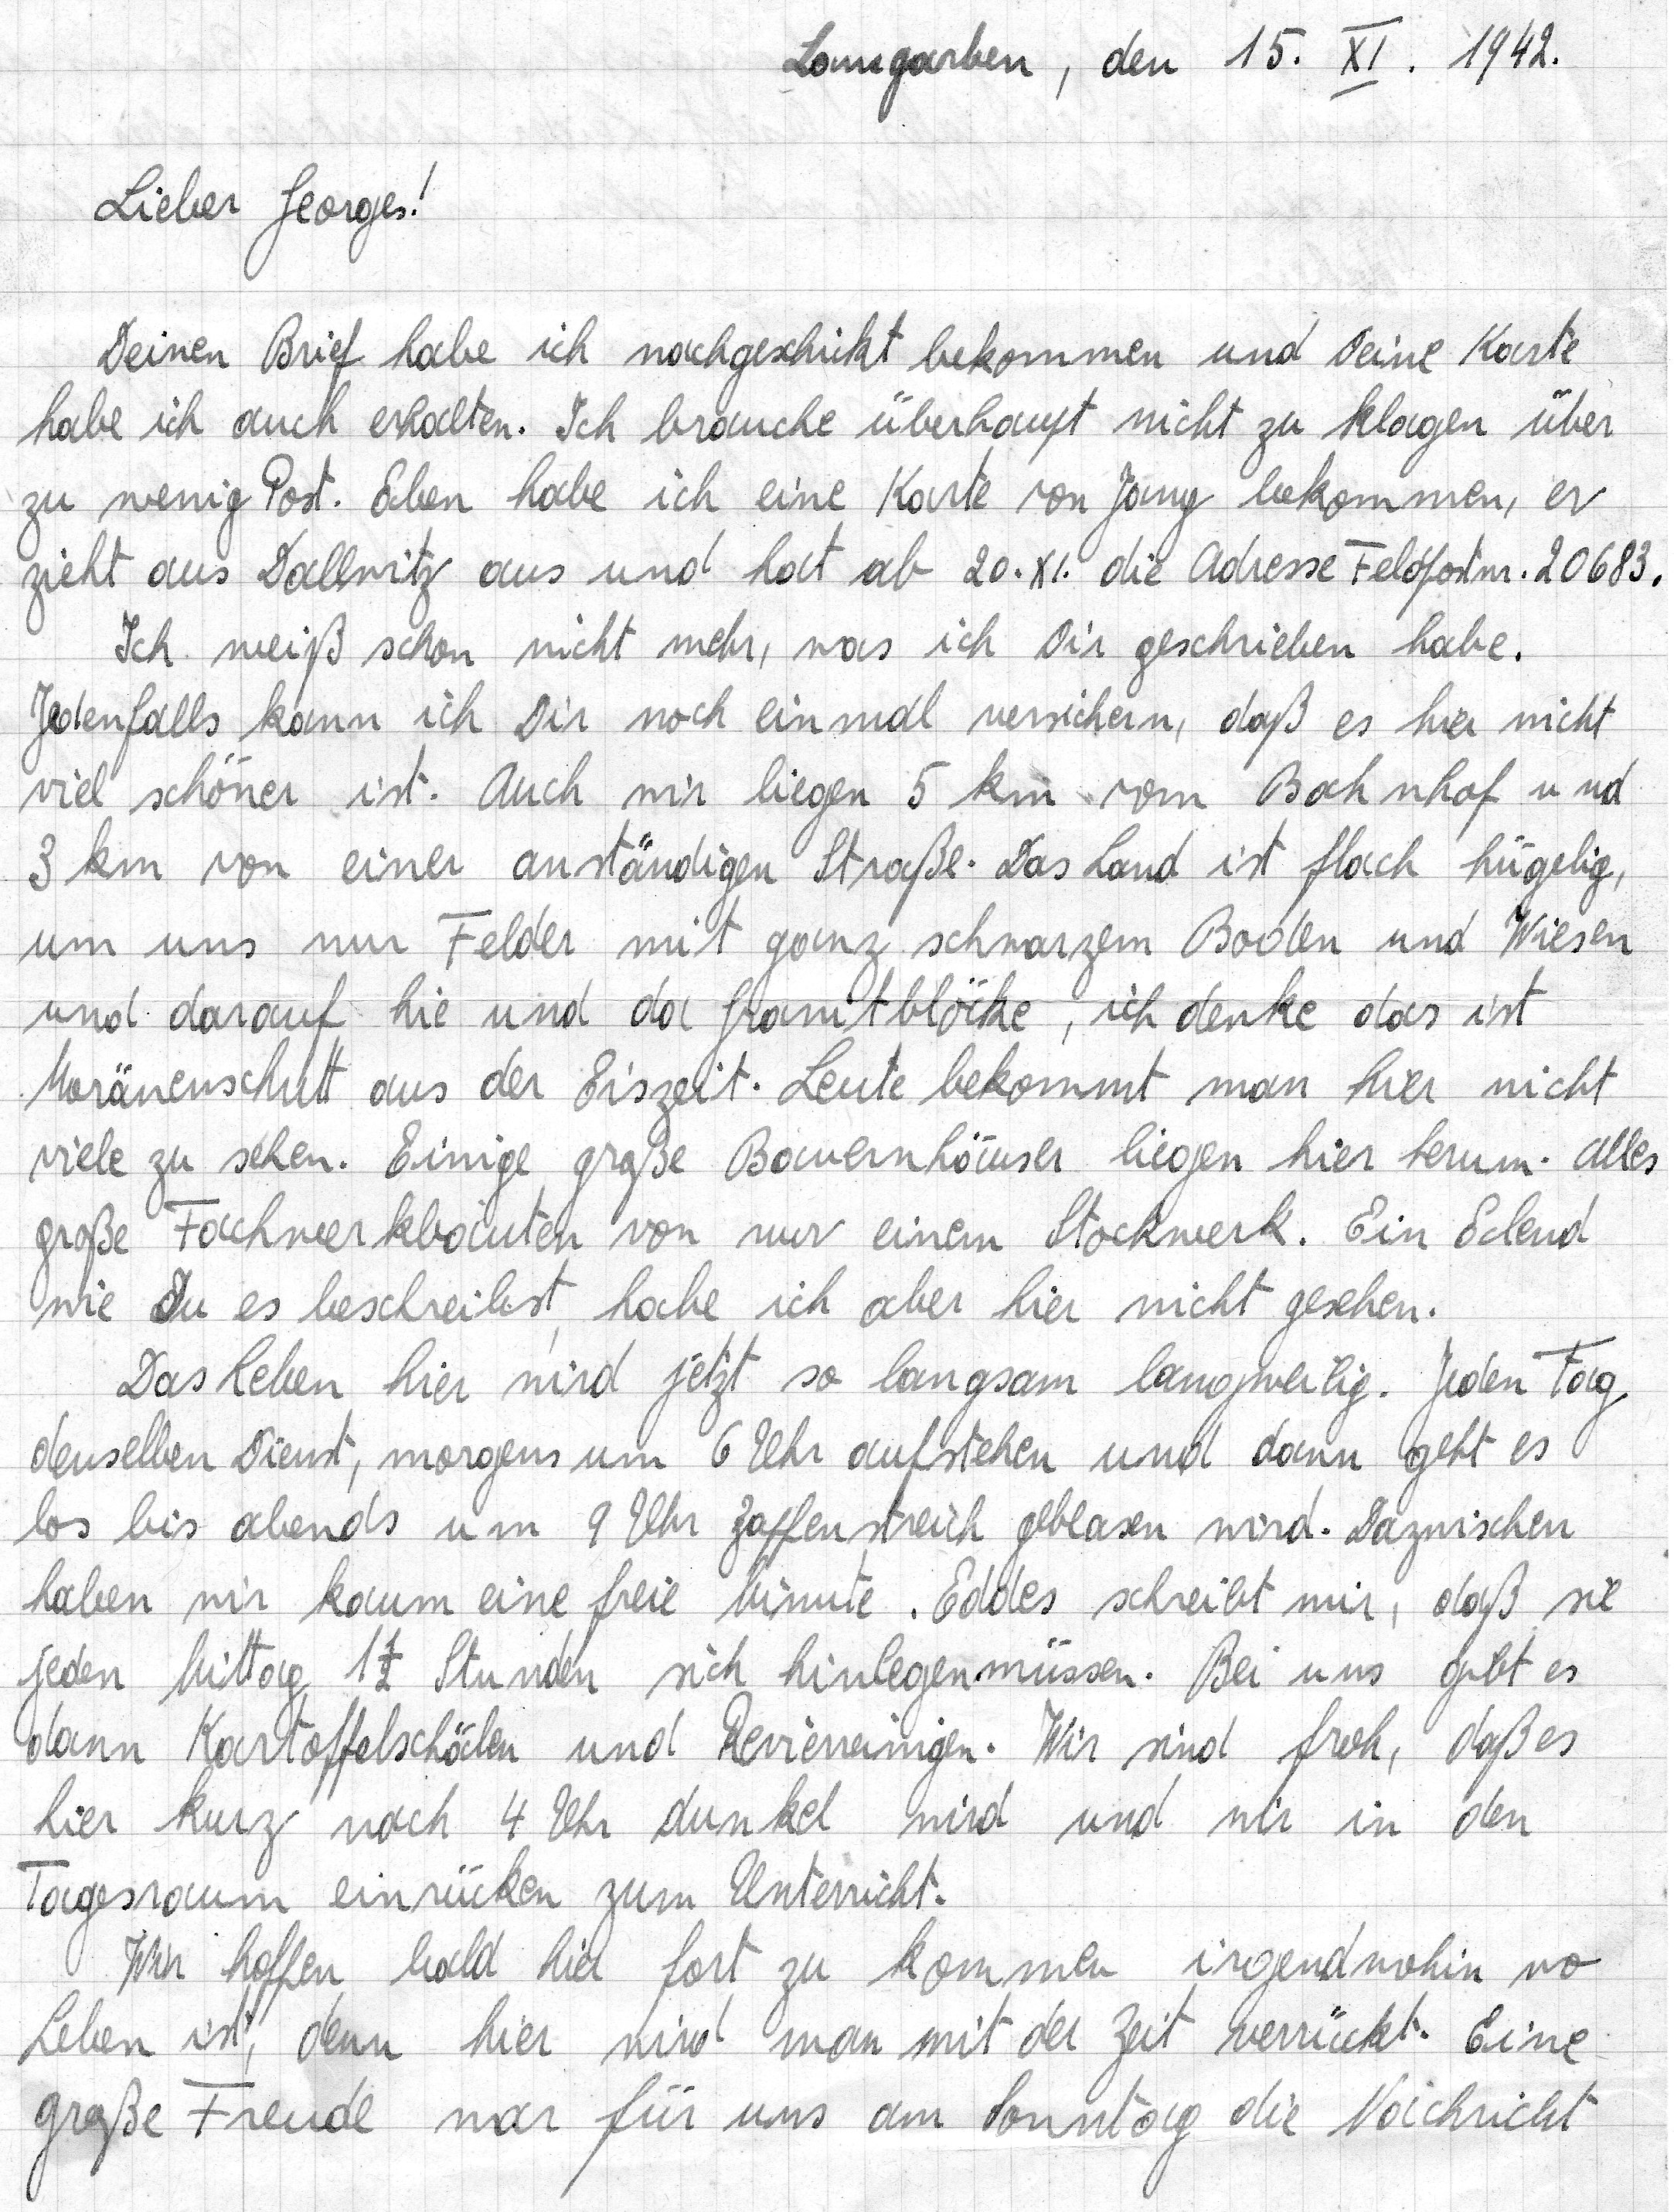 Lamgarben, den 15. XI. 1942.
Lieber Georges!
Deinen Brief habe ich nachgeschickt bekommen und Deine Karte
habe ich auch erhalten. Ich brauche überhaupt nicht zu klagen über
zu wenig Post. Eben habe ich eine Karte von Jang bekommen, er
zieht aus Dallwitz aus und hat ab 20. XI. die Adresse Feldpostnr. 20683.
Ich weiß schon nicht mehr, was ich Dir geschrieben habe.
Jedenfalls kann ich Dir noch einmal versichern, daß es hier nicht
viel schöner ist. Auch wir liegen 5 km vom Bahnhof und
3 km von einer anständigen Straße. Das Land ist flach hügelig,
um uns nur Felder mit ganz schwarzem Boden und Wiesen
und darauf hie und da Granitblöcke, ich denke das ist
Moränenschutt aus der Eiszeit. Leute bekommt man hier nicht
viele zu sehen. Einige große Bauernhäuser liegen hier herum. Alles
große Fachwerkbauten von nur einem Stockwerk. Ein Elend
wie Du es beschreibst, habe ich aber hier nicht gesehen.
Das Leben hier wird jetzt so langsam langweilig. Jeden Tag
denselben Dienst, morgens um 6 Uhr aufstehen und dann geht es
los bis abends um 9 Uhr Zaffenstreich geblasen wird. Dazwischen
haben wir kaum eine freie Minute. Eddes schreibt mir, daß sie
jeden Mittag 1½ Stunden sich hinlegen müssen. Bei uns gibt es
dann Kartoffelschälen und Revierreinigen. Wir sind froh, daß es
hier kurz nach 4 Uhr dunkel wird und wir in den
Tagesraum einrücken zum Unterricht.
Wir hoffen bald hier fort zu kommen irgendwohin wo
Leben ist, denn hier wird man mit der Zeit verrückt. Eine
große Freude war für uns am Sonntag die Nachricht